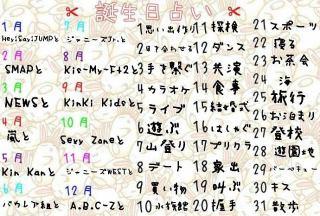 誕生日占い
1月
Hey!Say!JUMPと
2月
SMAPと
3月
NEWSと
4月
嵐と
5月
Kin Kanと
6月
7月
ジャニーズJr.と
8月
Kis-My-Ft2と
9月
KinKi Kidsと
10月
Sexy Zoneと
11月
ジャニーズWESTと
12月
A.B.C-Zと
1 思い出作り
2 目を合わせる
3 手を繋ぐ
4 カラオケ
5 ライブ
6 遊ぶ
7 山登り
8 デート
9 買い物
10 水族館
11 探検
12 ダンス
13 共演
14 食事
15 結婚式
16 はしゃぐ
17 プリクラ
18 家出
19 叫ぶ
20 握手
21 スポーツ
22 寝る
23 お茶会
24 海
25 旅行
26 お泊まり
27 登校
28 遊園地
29 バーベキュー
30 キス
31 散歩